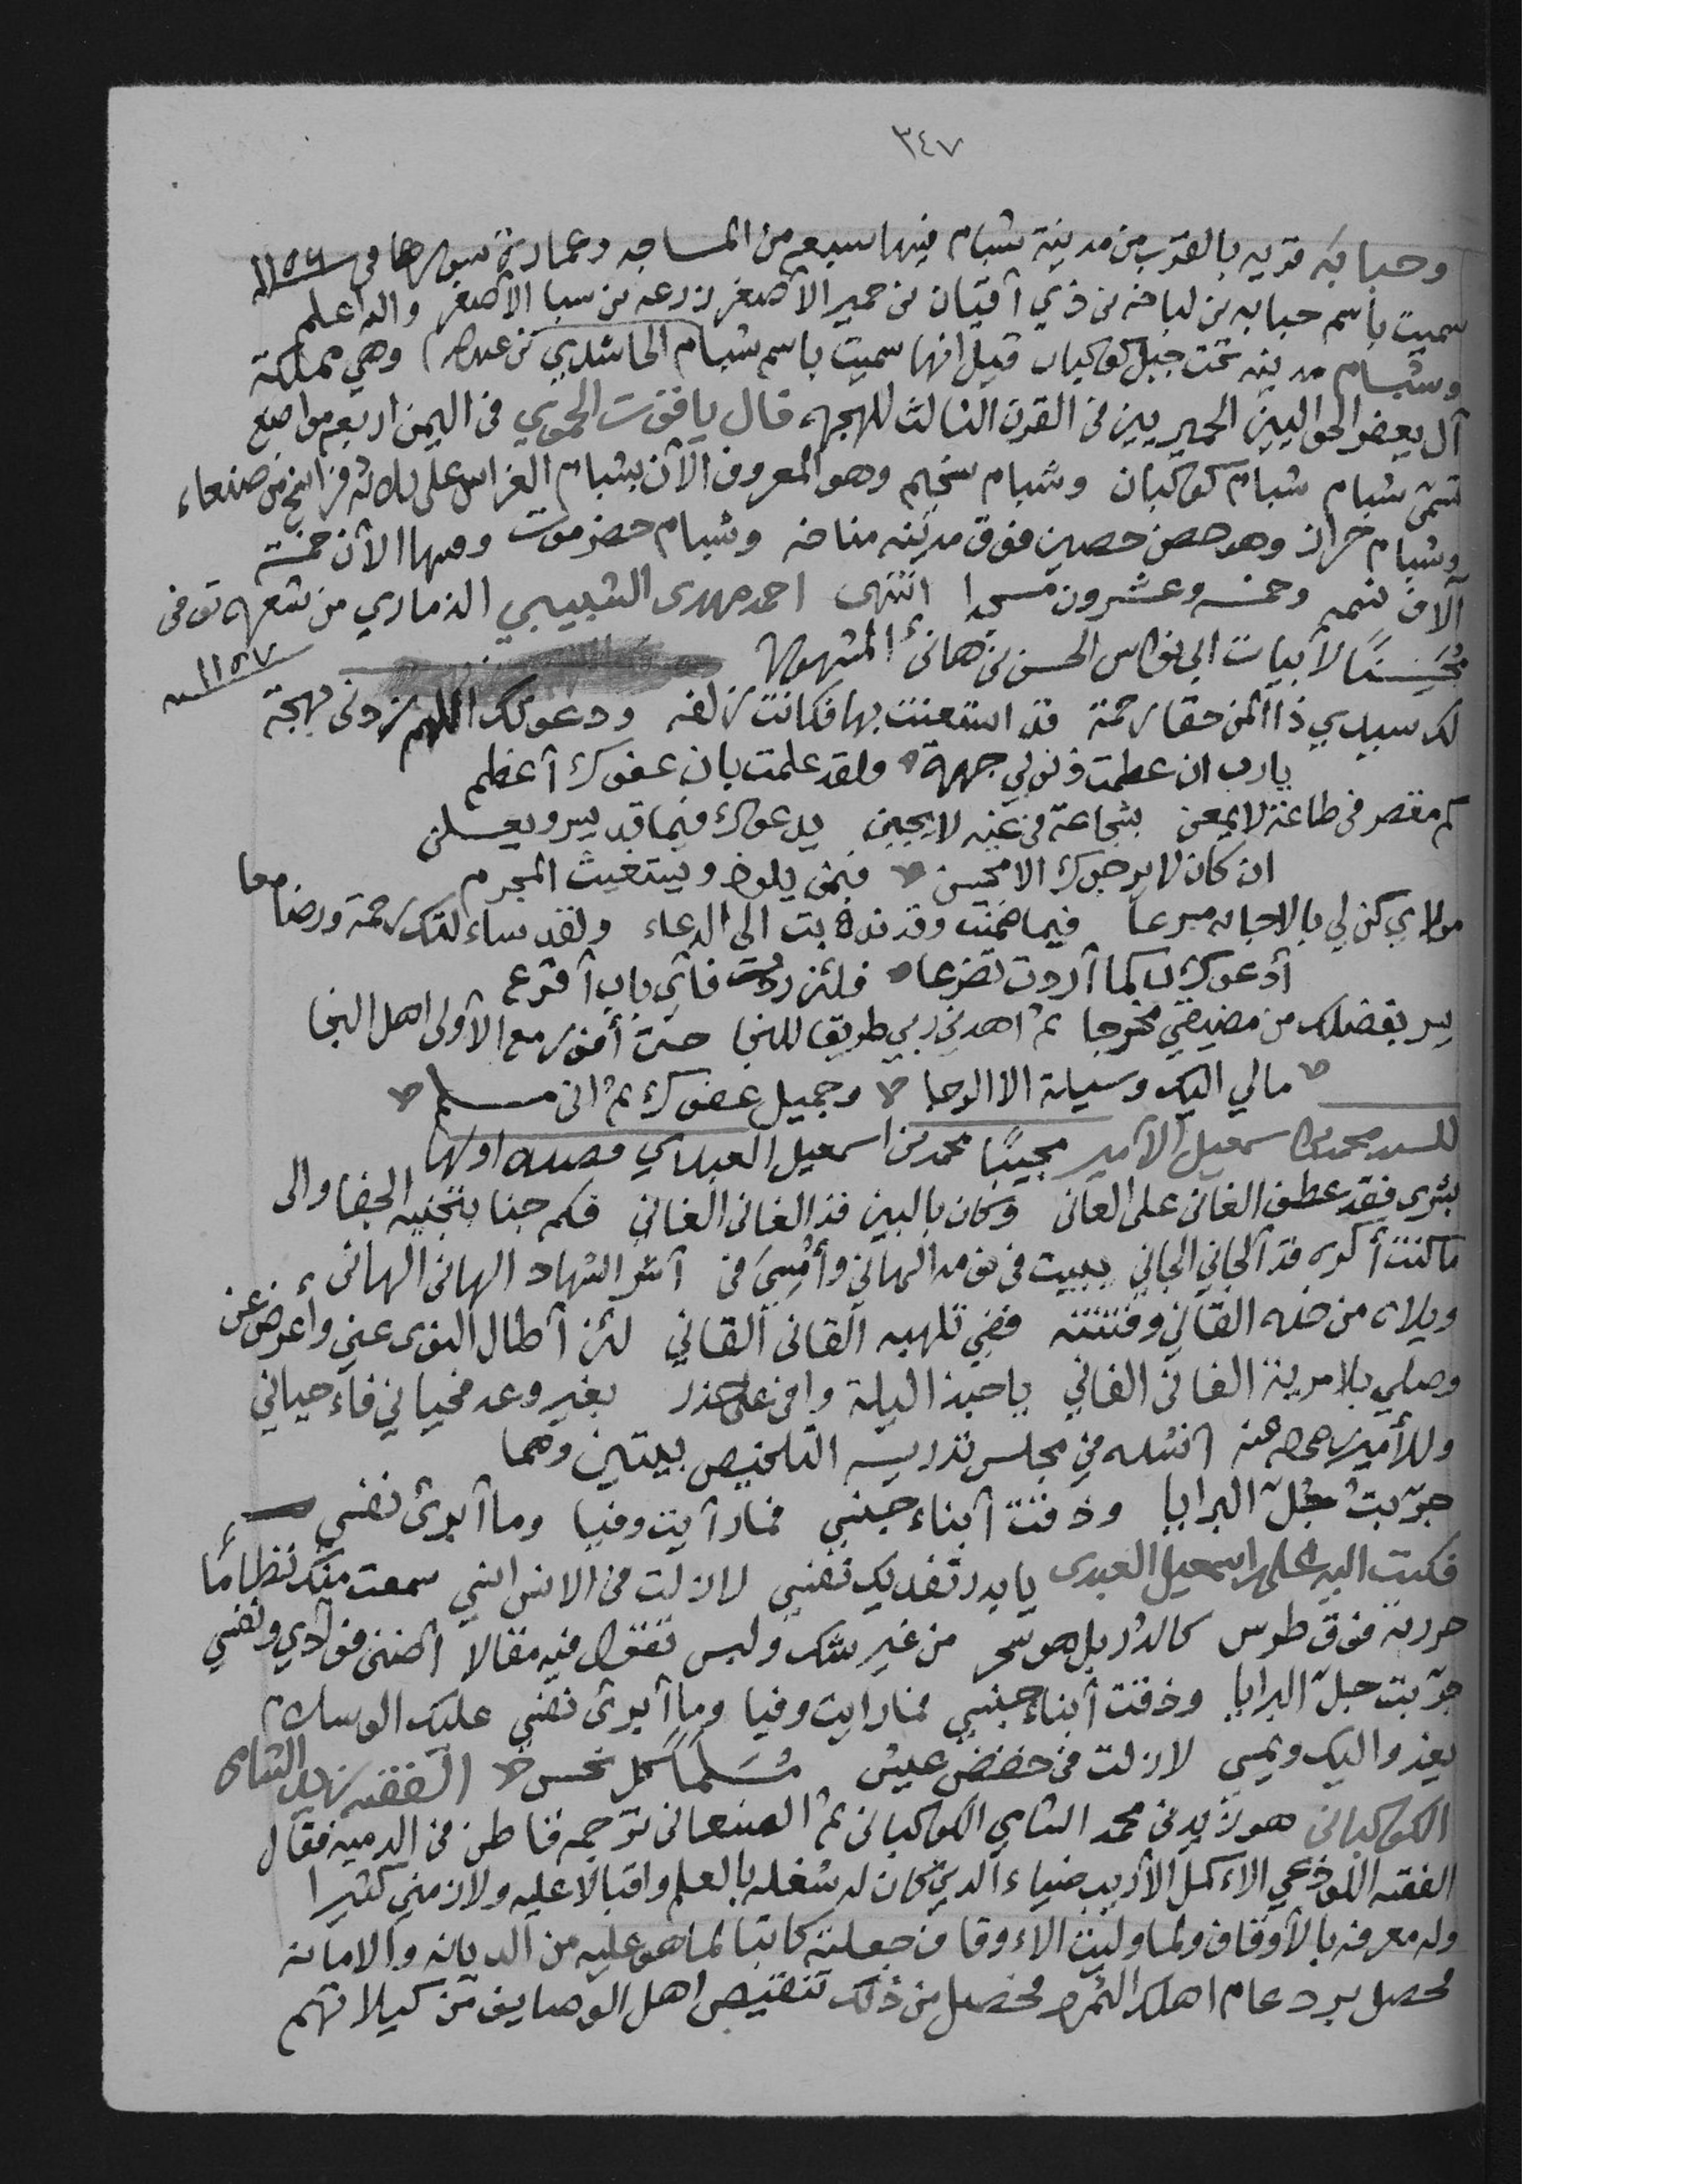 ٣٤٧
وحبابه قريه بالقرب من مدينة شبام فيها سبع من المساجد وعمارة سورها في ١١٥٦
سميت باسم حبابه بن لباخه بن ذي آقيان بن حمير الأصغر بن زرعه بن سبا الأصغر والله اعلم
وشبام مدينه تحت جبل كوكبان قيل انها سميت باسم شبام الحاشدي بن عبدالله وهي مملكة
آل يعفر الحواليين الحميريين في القرن الثالث للهجره قال ياقوت الحموي في اليمن اربعه مواضع
تسمى شبام شبام كوكبان وشبام سخيم وهو المعروف الآن بشبام الغراس على ثلاثه فراسخ من صنعاء
وشبام حراز وهو حصن حصين فوق مدينه مناخه وشبام حضرموت وبها الآن خمسة
آلاف نسمه وخمسه وعشرون مسجدا انتهى احمد مهدى الشبيبي الذماري من شعره توفى
مُخَمِّسًا لأبيات ابي نواس الحسن بن هانئ المشهوره
١١٥٧
لك سيدي ذا المن حقا رحمة قد استعنت بها فكانت زلفه ودعوتك اللهم زدنى بهجة
يارب ان عظمت ذنوبي جهرة ولقد علمت بان عفوك آعظم
كم مقصر في طاعة لا يمعن بشجاعة في غيه لا يجبن يدعوك فيما قد يسر ويعلن
ان كان لا يرجوك الا محسن فبمن يلوذ ويستغيث المجرم
مولاي كن لي بالاجابه مسرعا فيما وقد ندبت الى الدعاء ولقد سائلتك رحمة ورضا معا
أدعوك كما آردت تضرعا فلئن رددت فآي باب آقرع
يسر بفضلك من مضيقي مخرجا ثم اهدني ربي طريقا للنجا حتى أفوز مع الآولى اهل النجا
مالي اليك وسيلة الا الرجا وجميل عفوك ثم انى مسلم
للسيد محمد بن اسمعيل الآمير مجيبًا محمد بن اسمعيل العبدي قصيده اولها
بشرى فقد عطف الغانى على العانى وكان بالبين قد الغانى الغانى فكم جنا بتجنيه الجفا والى
ما كنت أكره قد آلجاني الجاني يبيت في نومه الهانى وأمْسِيَ في آسر السهاد الهانى الهانى
ويلاه من خده القاني وفتنته ففي تلهبه القانى القاني لئن آطال النوى عني واعرض عن
وصلي بلا مرية الفانى الفاني يا حبذا ليلة وافى على حذر بغير وعد فحياني فاء حياني
وللأمير رحمه الله عنه انشده في مجلس تدريسه التلخيص بيتين وهما
جرّبتُ جُلّ البرايا وذقت آبناء جنسي فما رآيت وفيا وما آبرئ نفسي
فكتب اليه علي بن اسمعيل العبدى يا بدر تفديك نفسي لا زلت في الانس انسي سمعت منك نظامًا
حررته فوق طرس كالدر بل هو سحر من غير شك ولبس تقول فيه مقالا اضنى فوآدي ونفسي
جرّبت جلّ البرايا وذقت آبناء جنسي فما رايت وفيا وما آبرئ نفسي عليك السلام
يغدو اليك ويمسي لا زلت في خفض عيش مُسَلّمًا كل نحس الفقيه زيد الشامي
الكوكبانى هو زيد بن محمد الشامي الكوكبانى ثم الصنعانى ترجمه قاطن في الدميه فقال
الفقيه اللوذعي الأكمل الأديب ضياء الدين كان له شغله بالعلم واقبالا عليه ولازمني كثيرا
وله معرفه بالأوقاف ولما وليت الاء وقاف جعلته كاتبا لما هو عليه من الديانه والامانه
فحصل برد عام اهلك الثمره فحصل من ذلك تنقيص اهل الوصايف من كيلاتهم